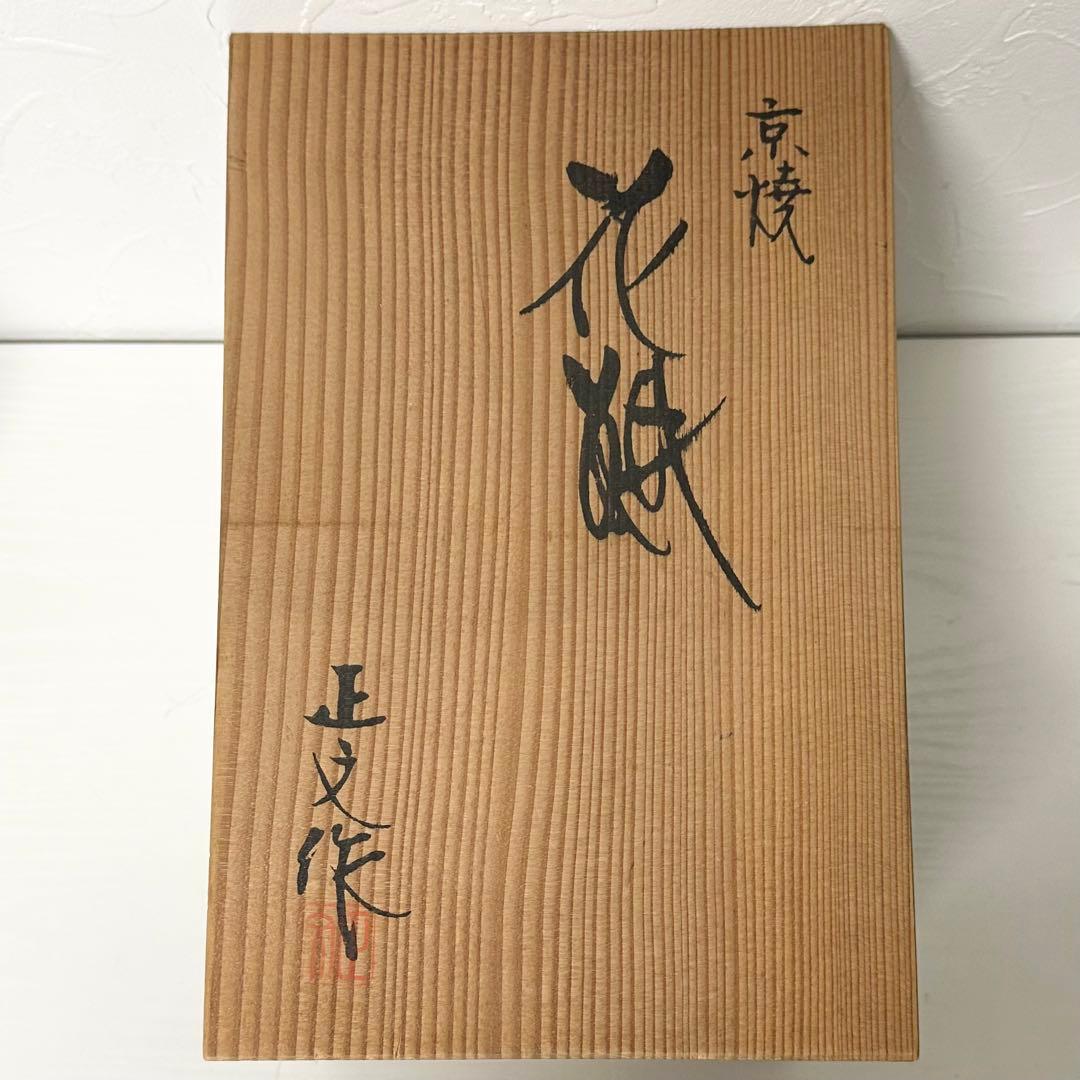 京燒
花瓶
正文作